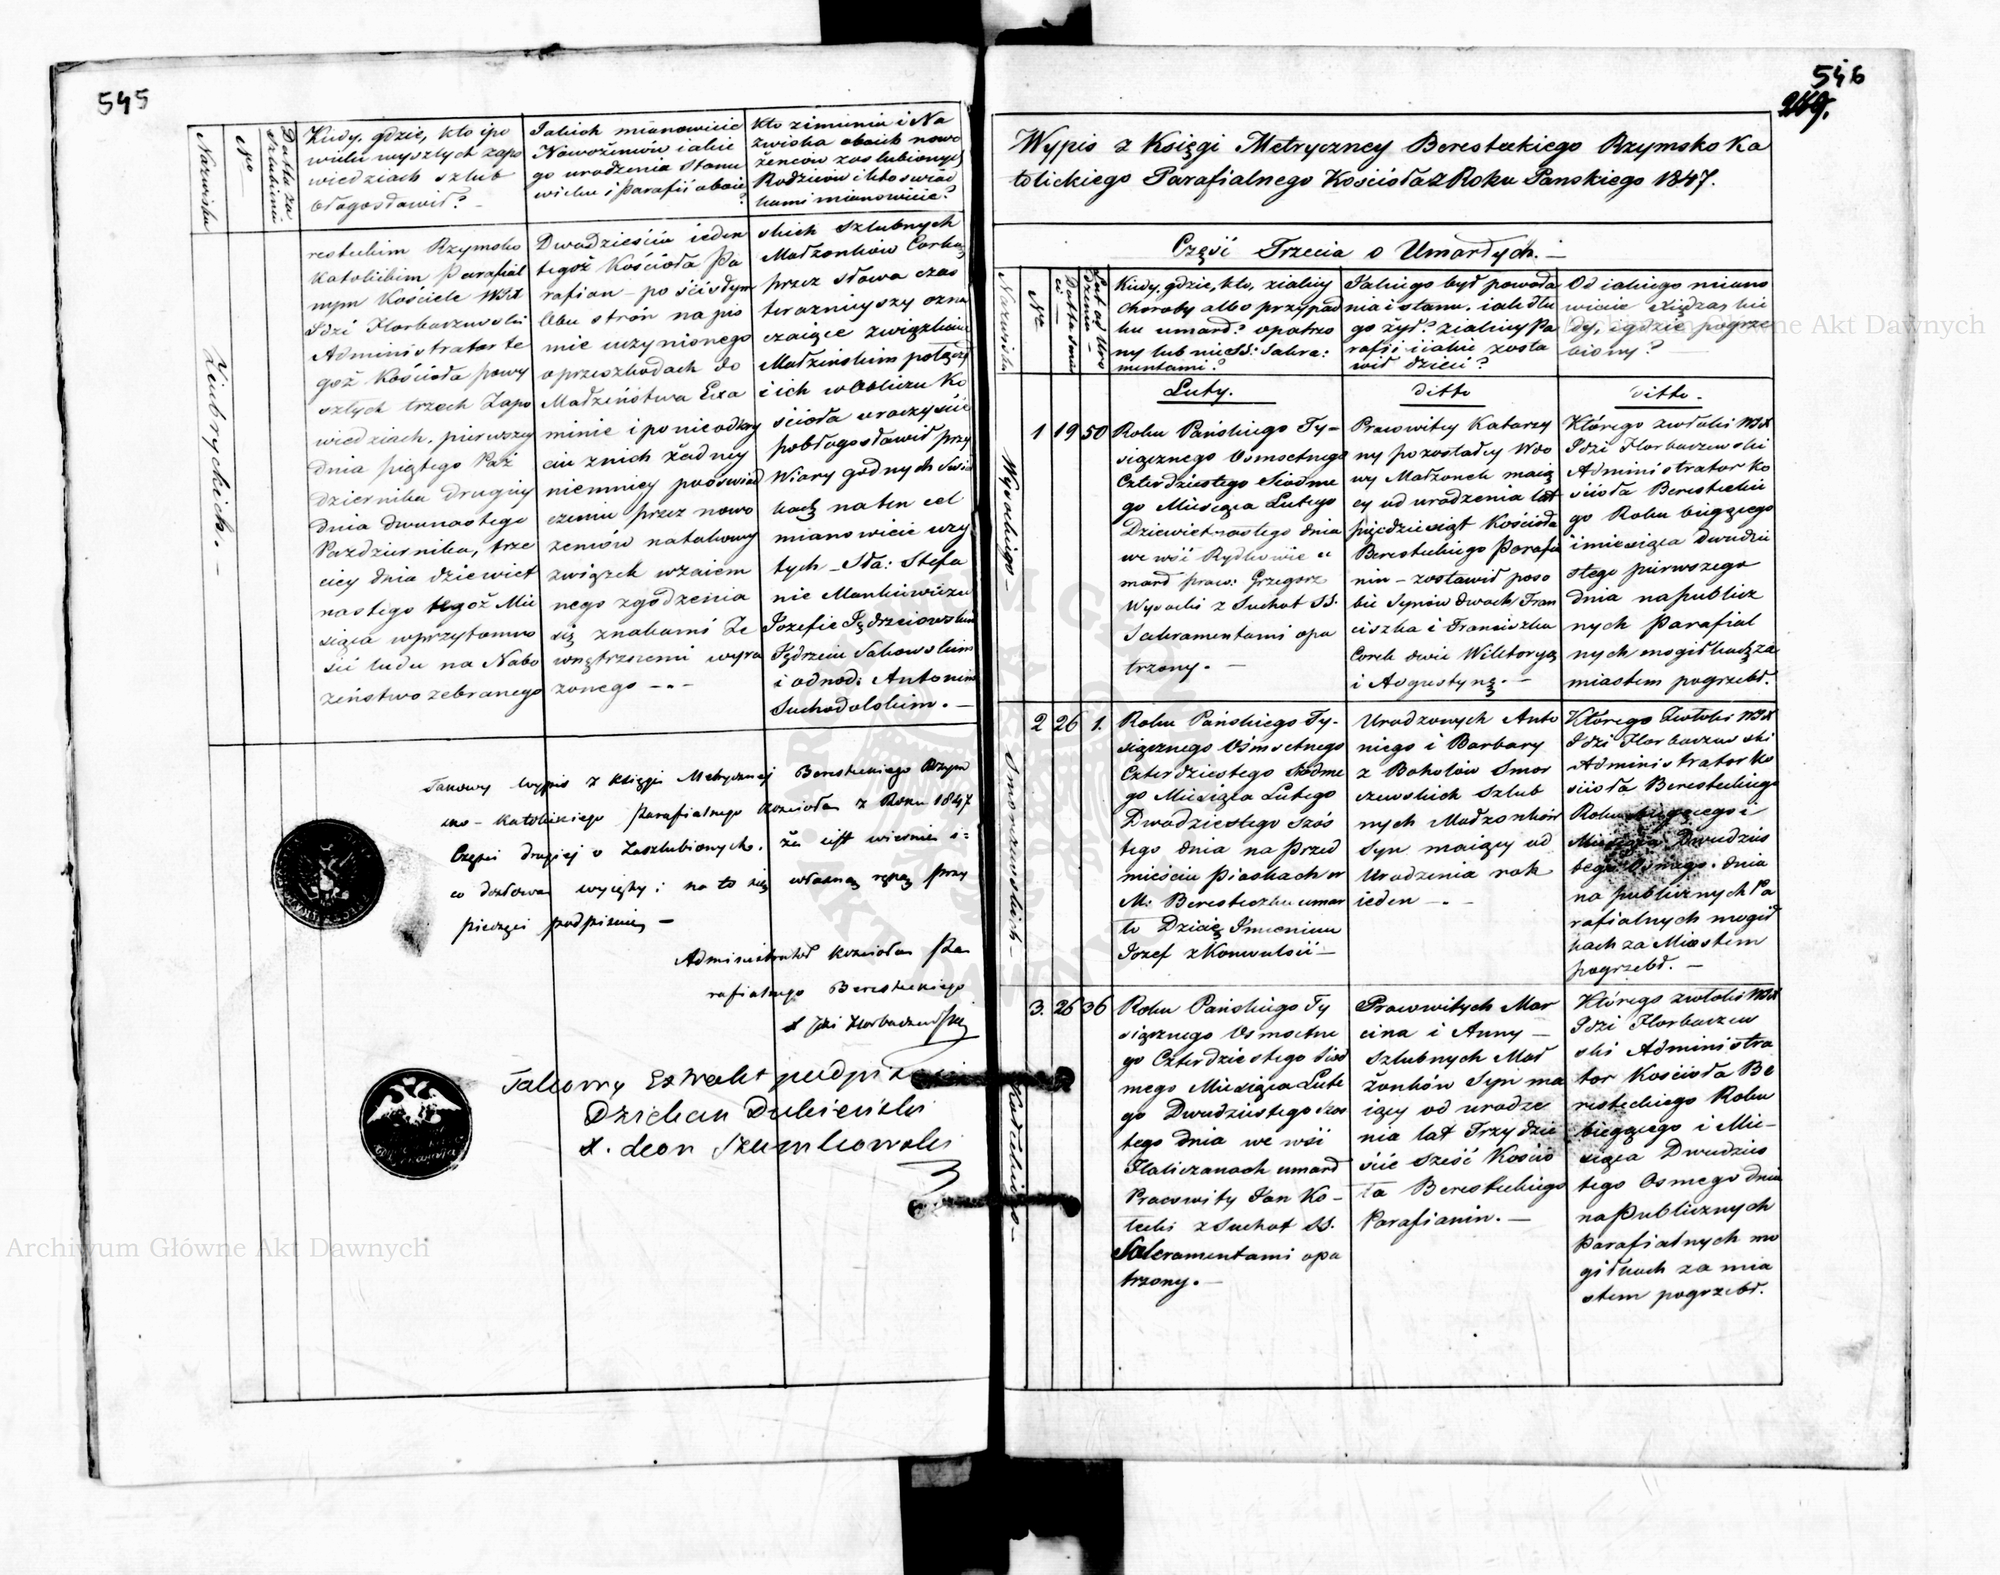 545
Nazwiska
Nro
Datta za
szlubinia
Kiedy, gdzie, kto i po
wielu wyszłych zapo
wiedziach szlub
błogosławił? -
Jakich mianowicie
Nowożeńców i akie
go urodzenia Stanu
wieku i Parafii oboie?
Kto z imienia i Na
zwiska oboich nowo
żeńców zaszlubionych
Rodziców i kto świad
kami mianowicie?
Ziubryckich. -
resteckim Rzymsko
Katolickim Parafial
nym Kościele WJX
Idzi Horbaczewski
Administrator te
goż Kościoła po wy
szłych trzech Zapo
wiedziach, pierwszey
dnia piątego Paź
dziernika drugiey
dnia dwunastego
Pazdziernika, trze
ciey dnia dziewiet
nastego tegoż Mie
siąca w przytomno
ści ludu na Nabo
żeństwo zebranego
Dwadzieścia ieden
tegoż Kościoła Pa
rafian - po ścisłym
Obu stron na piś
mie uczynionego
o przeszkodach do
Małżeństwa Exa
minie i po nieodkry
ciu z nich żadney
niemniey poświad
czeniu przez nowo
żeńców na takowy
związek wzaiem
nego zgodzenia
się znakami Ze
wnętrznemi wyra
żonego -"-
skich Szlubnych
Małżonków Corką
przez słowa czas
teraznieyszy ozna
czaiące związkiem
Małżeńskim połączył
i ich w Obliczu Ko
ścioła uroczyście
pobłogosławił przy
Wiary godnych Świad
kach na ten cel
mianowicie uży
tych - Sła: Stefa
nie Mankiewiczu
Jozefie Jędrzeiowskim
Jędrzeiu Sakowskim
i odnod: Antonim
Suchodolskim. -
Takowy wypis z Księgi Metryczney Beresteckiego Rzym
sko-Katolickiego Parafialnego Kościoła z Roku 1847
Części drugiej o Zaszlubionych, że iest wiernie s=
co dosłowa wyięty; na to się własną ręką przy
pieczęci podpisuię -
Administrator Kościoła Pa
rafialnego Beresteckiego
X Idzi Horbaczewski
Takowy Extrakt podpis
Dziekan Dubieński
X. Leon Szumkowski
546
249.
Wypis z Księgi Metryczney Beresteckiego Rzymsko Ka
tolickiego Parafialnego Kościoła z Roku Panskiego 1847.
Część Trzecia o Umarłych. -
Nazwiska
Nro
Datta śmier
ci
Lat od Uro
dzenia -
Kiedy, gdzie, kto, z iakiey
choroby albo przypad
ku umarł? opatrzo
ny lub nie SS: Sakra:
mentami?
Iakiego był powoła
nia i stanu, iak dłu
go żył? z iakiey Pa
rafii i iakie zosta
wił dzieci?
Od iakiego miano
wicie Xiędza, kie
dy, i gdzie pogrze
biony? -
Luty.
ditto
ditto.
Wysockiego -
1
19
50
Roku Pańskiego Ty-
siącznego Osmsetnego
Czterdziestego Siodme
go Miesiąca Lutego
Dziewietnastego dnia
we wsi Rydkowie u
marł praw: Grzegorz
Wysocki z Suchot SS.
Sakramentami opa
trzony. -
Pracowitey Katarzy
ny po zostałey Wdo
wy Małżonek maią
cy od urodzenia lat
pięćdziesiąt Kościoła
Beresteckiego Parafia
nin - zostawił poso
bie Synów dwoch Fran
ciszka i Franciszka
Corek dwie Wiktoryą
i Augustynę. -
Którego zwłoki WJX
Idzi Horbaczewski
Administrator Ko
ścioła Beresteckie
go Roku bieżącego
i miesiąca dwudzie
stego pierwszego
dnia na publicz
nych Parafial
nych mogiłkach za
miastem pogrzebł.
Smorczewskich -
2
26
1.
Roku Pańskiego Ty-
siącznego Ośmsetnego
Czterdziestego Siodme
go Miesiąca Lutego
Dwadziestego Szós
tego dnia na Przed
mieściu Piaskach w
M: Beresteczku umar
ło Dziecię Imieniem
Jozef z Konwulsii -
Urodzonych Anto
niego i Barbary
z Bokolów Smor
czewskich Szlub
nych Małżonków
Syn maiący od
Urodzenia rok
ieden - . -
Którego Zwłoki WJX
Idzi Horbaczewski
Administrator Ko
ścioła Beresteckiego
Roku bieżącego i
Miesiąca Dwudzies
tego Osmego dnia
na publicznych Pa
rafialnych mogił
kach za Miastem
pogrzebł. -
Kuleckiego -
3.
26
36
Roku Pańskiego Ty
siącznego Osmsetne
go Czterdziestego Siod
mego Miesiąca Lute
go Dwudziestego Szos
tego dnia we wsi
Haliczanach umarł
Pracowity Jan Ko-
lecki z Suchot SS.
Sakramentami opa
trzony. -
Pracowitych Mar
cina i Anny -
Szlubnych Mał
żonków Syn ma
iący od urodze
nia lat Trzydzie
ście sześć Kościo
ła Beresteckiego
Parafianin. -
Którego zwłoki WJX
Idzi Horbaczew
ski Administra
tor Kościoła Be
resteckiego Roku
bieżącego i Mie-
siąca Dwudzies
tego Osmego dnia
na Publicznych
Parafialnych mo
giłkach za mia
stem pogrzebł.
Archiwum Główne Akt Dawnych
Archiwum Główne Akt Dawnych